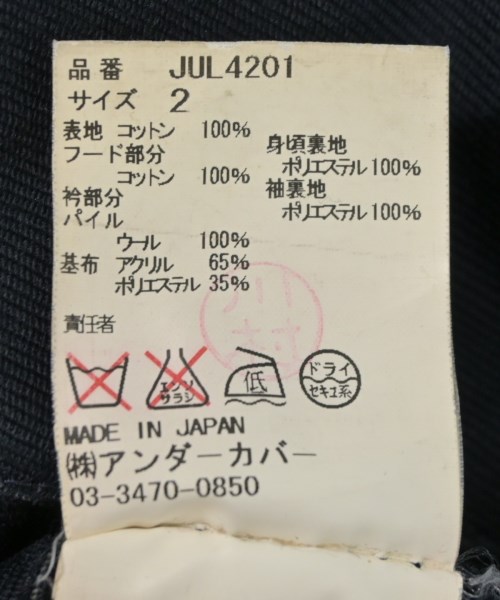 品番 JUL4201
サイズ 2
表地 コットン 100%
フード部分
コットン 100%
衿部分
パイル
ウール 100%
基布 アクリル 65%
ポリエステル 35%
身頃裏地
ポリエステル 100%
袖裏地
ポリエステル 100%
責任者
川村
エンソ
サラシ
低
ドライ
セキユ系
MADE IN JAPAN
㈱アンダーカバー
03-3470-0850